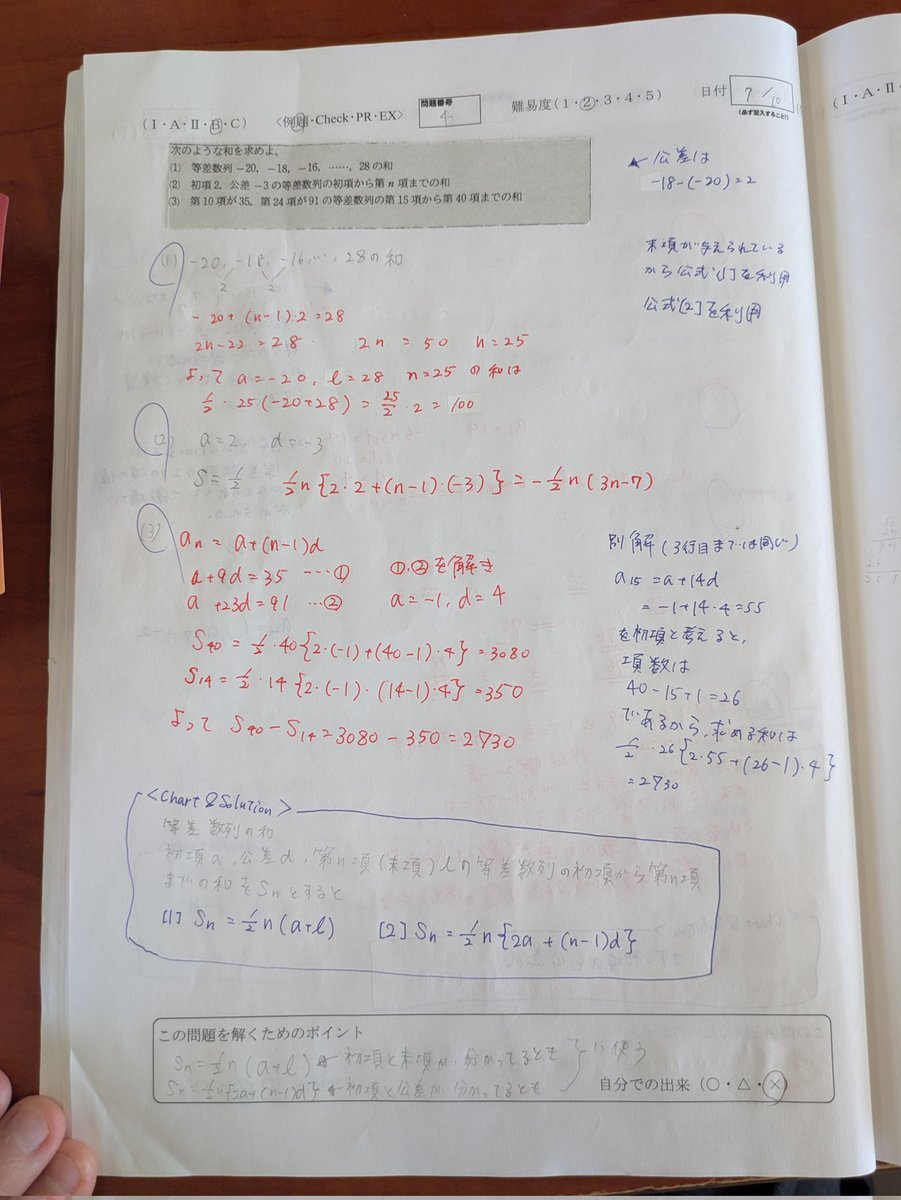 (I・A・II・B・C) 〈例題・Check・PR・EX〉 問題番号 4 難易度(1・2・3・4・5) 日付 7/10
(必ず記入すること!)
次のような和を求めよ。
(1) 等差数列 -20, -18, -16, ……, 28の和
(2) 初項2, 公差 -3の等差数列の初項から第n項までの和
(3) 第10項が35, 第24項が91の等差数列の第15項から第40項までの和
← 公差は
-18-(-20)=2
(1) -20, -18, -16, …, 28の和
2 2
末項が与えられている
から公式[1]を利用
公式[2]を利用
-20+(n-1)・2=28
2n-22=28 2n=50 n=25
よって a=-20, l=28 n=25 の和は
1/2・25(-20+28)=25/2・2=100
(2) a=2 d=-3
S=1/2 1/2n{2・2+(n-1)・(-3)}=-1/2n(3n-7)
(3) an=a+(n-1)d
a+9d=35 …① ①,②を解き
a+23d=91 …② a=-1, d=4
S40=1/2・40{2・(-1)+(40-1)・4}=3080
S14=1/2・14{2・(-1)・(14-1)・4}=350
よって S40-S14=3080-350=2730
別解(3行目までは同じ)
a15=a+14d
=-1+14・4=55
を初項と考えると,
項数は
40-15+1=26
であるから,求める和は
1/2・26{2・55+(26-1)・4}
=2730
<Chart & Solution>
等差数列の和
初項a, 公差d, 第n項(末項)lの等差数列の初項から第n項
までの和をSnとすると
[1] Sn=1/2n(a+l) [2] Sn=1/2n{2a+(n-1)d}
この問題を解くためのポイント
Sn=1/2n(a+l) ← 初項と末項が分かってるとき } に使う
Sn=1/2n{2a+(n-1)d} ← 初項と公差が分かってるとき
自分での出来(○・△・×)